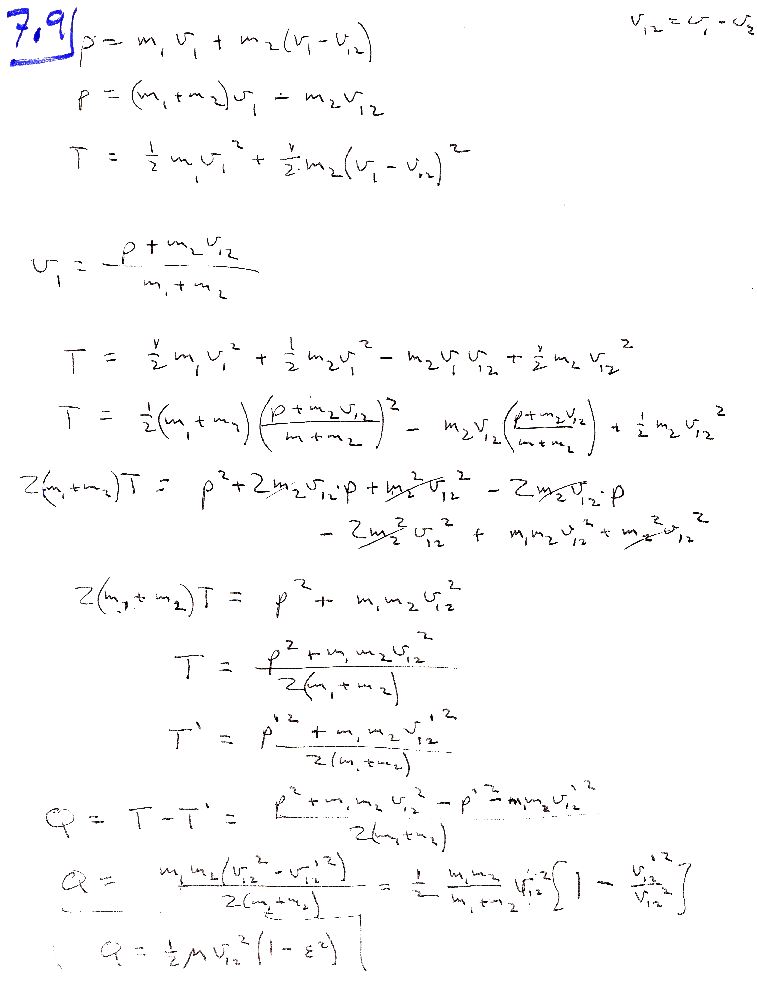 7.9 p = m₁v₁ + m₂(v₁ - v₁₂)
v₁₂ = v₁ - v₂
p = (m₁+m₂)v₁ - m₂v₁₂
T = ½ m₁v₁² + ½ m₂(v₁ - v₁₂)²
v₁ = (p + m₂v₁₂)/(m₁ + m₂)
T = ½ m₁v₁² + ½ m₂v₁² - m₂v₁v₁₂ + ½ m₂v₁₂²
T = ½(m₁+m₂)((p+m₂v₁₂)/(m+m₂))² - m₂v₁₂((p+m₂v₁₂)/(m+m₂)) + ½ m₂v₁₂²
2(m₁+m₂)T = p² + 2m₂v₁₂·p + m₂²v₁₂² - 2m₂v₁₂·p
- 2m₂²v₁₂² + m₁m₂v₁₂² + m₂²v₁₂²
2(m₁+m₂)T = p² + m₁m₂v₁₂²
T = (p² + m₁m₂v₁₂²)/(2(m₁+m₂))
T' = (p'² + m₁m₂v₁₂'²)/(2(m₁+m₂))
Q = T - T' = (p² + m₁m₂v₁₂² - p'² - m₁m₂v₁₂'²)/(2(m₁+m₂))
Q = (m₁m₂(v₁₂² - v₁₂'²))/(2(m₁+m₂)) = ½ (m₁m₂)/(m₁+m₂) v₁₂² [1 - v₁₂'²/v₁₂²]
Q = ½ μ v₁₂² (1 - ε²)